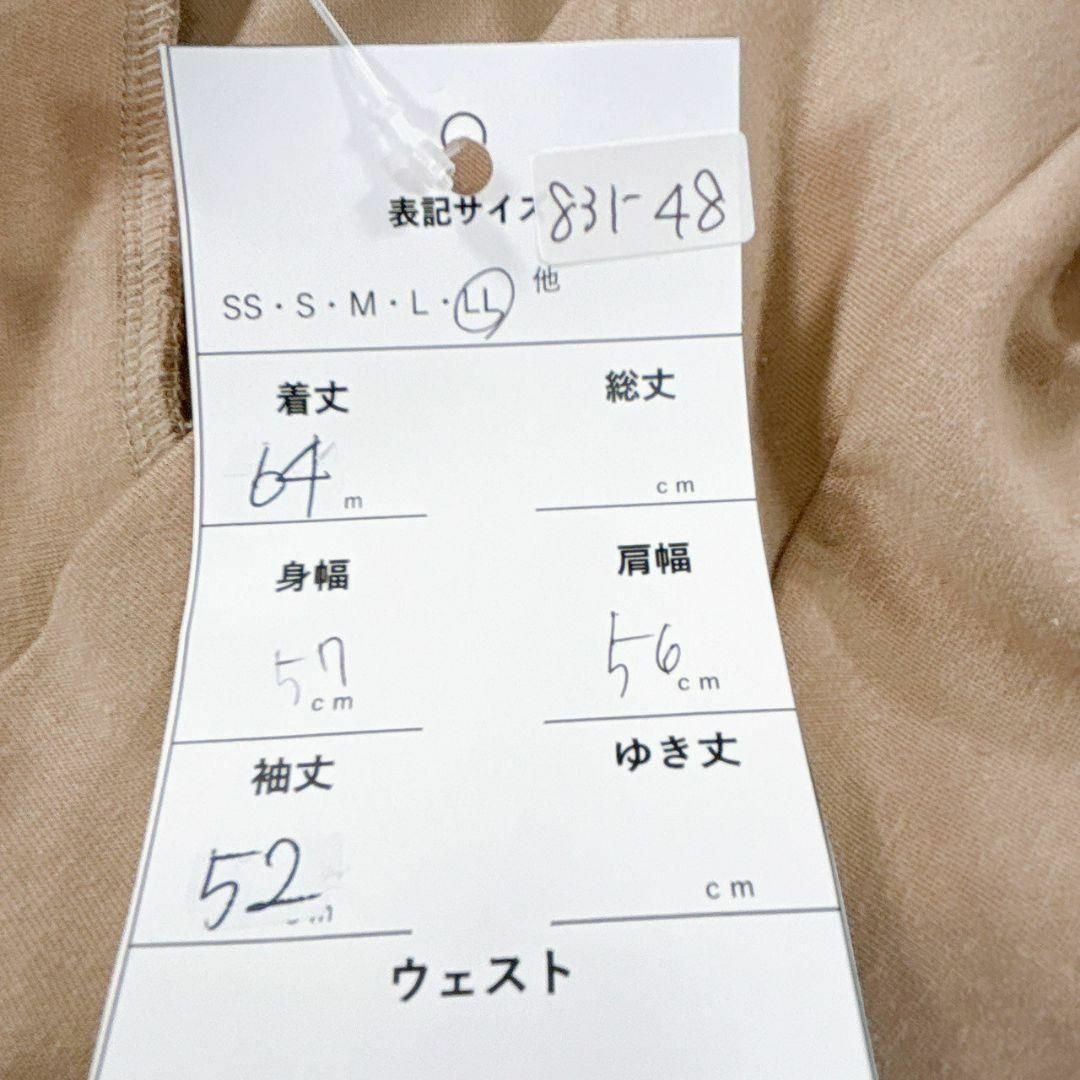 表記サイズ 831-48
SS・S・M・L・LL 他
着丈 総丈
64 m cm
身幅 肩幅
57 cm 56 cm
袖丈 ゆき丈
52 cm cm
ウェスト